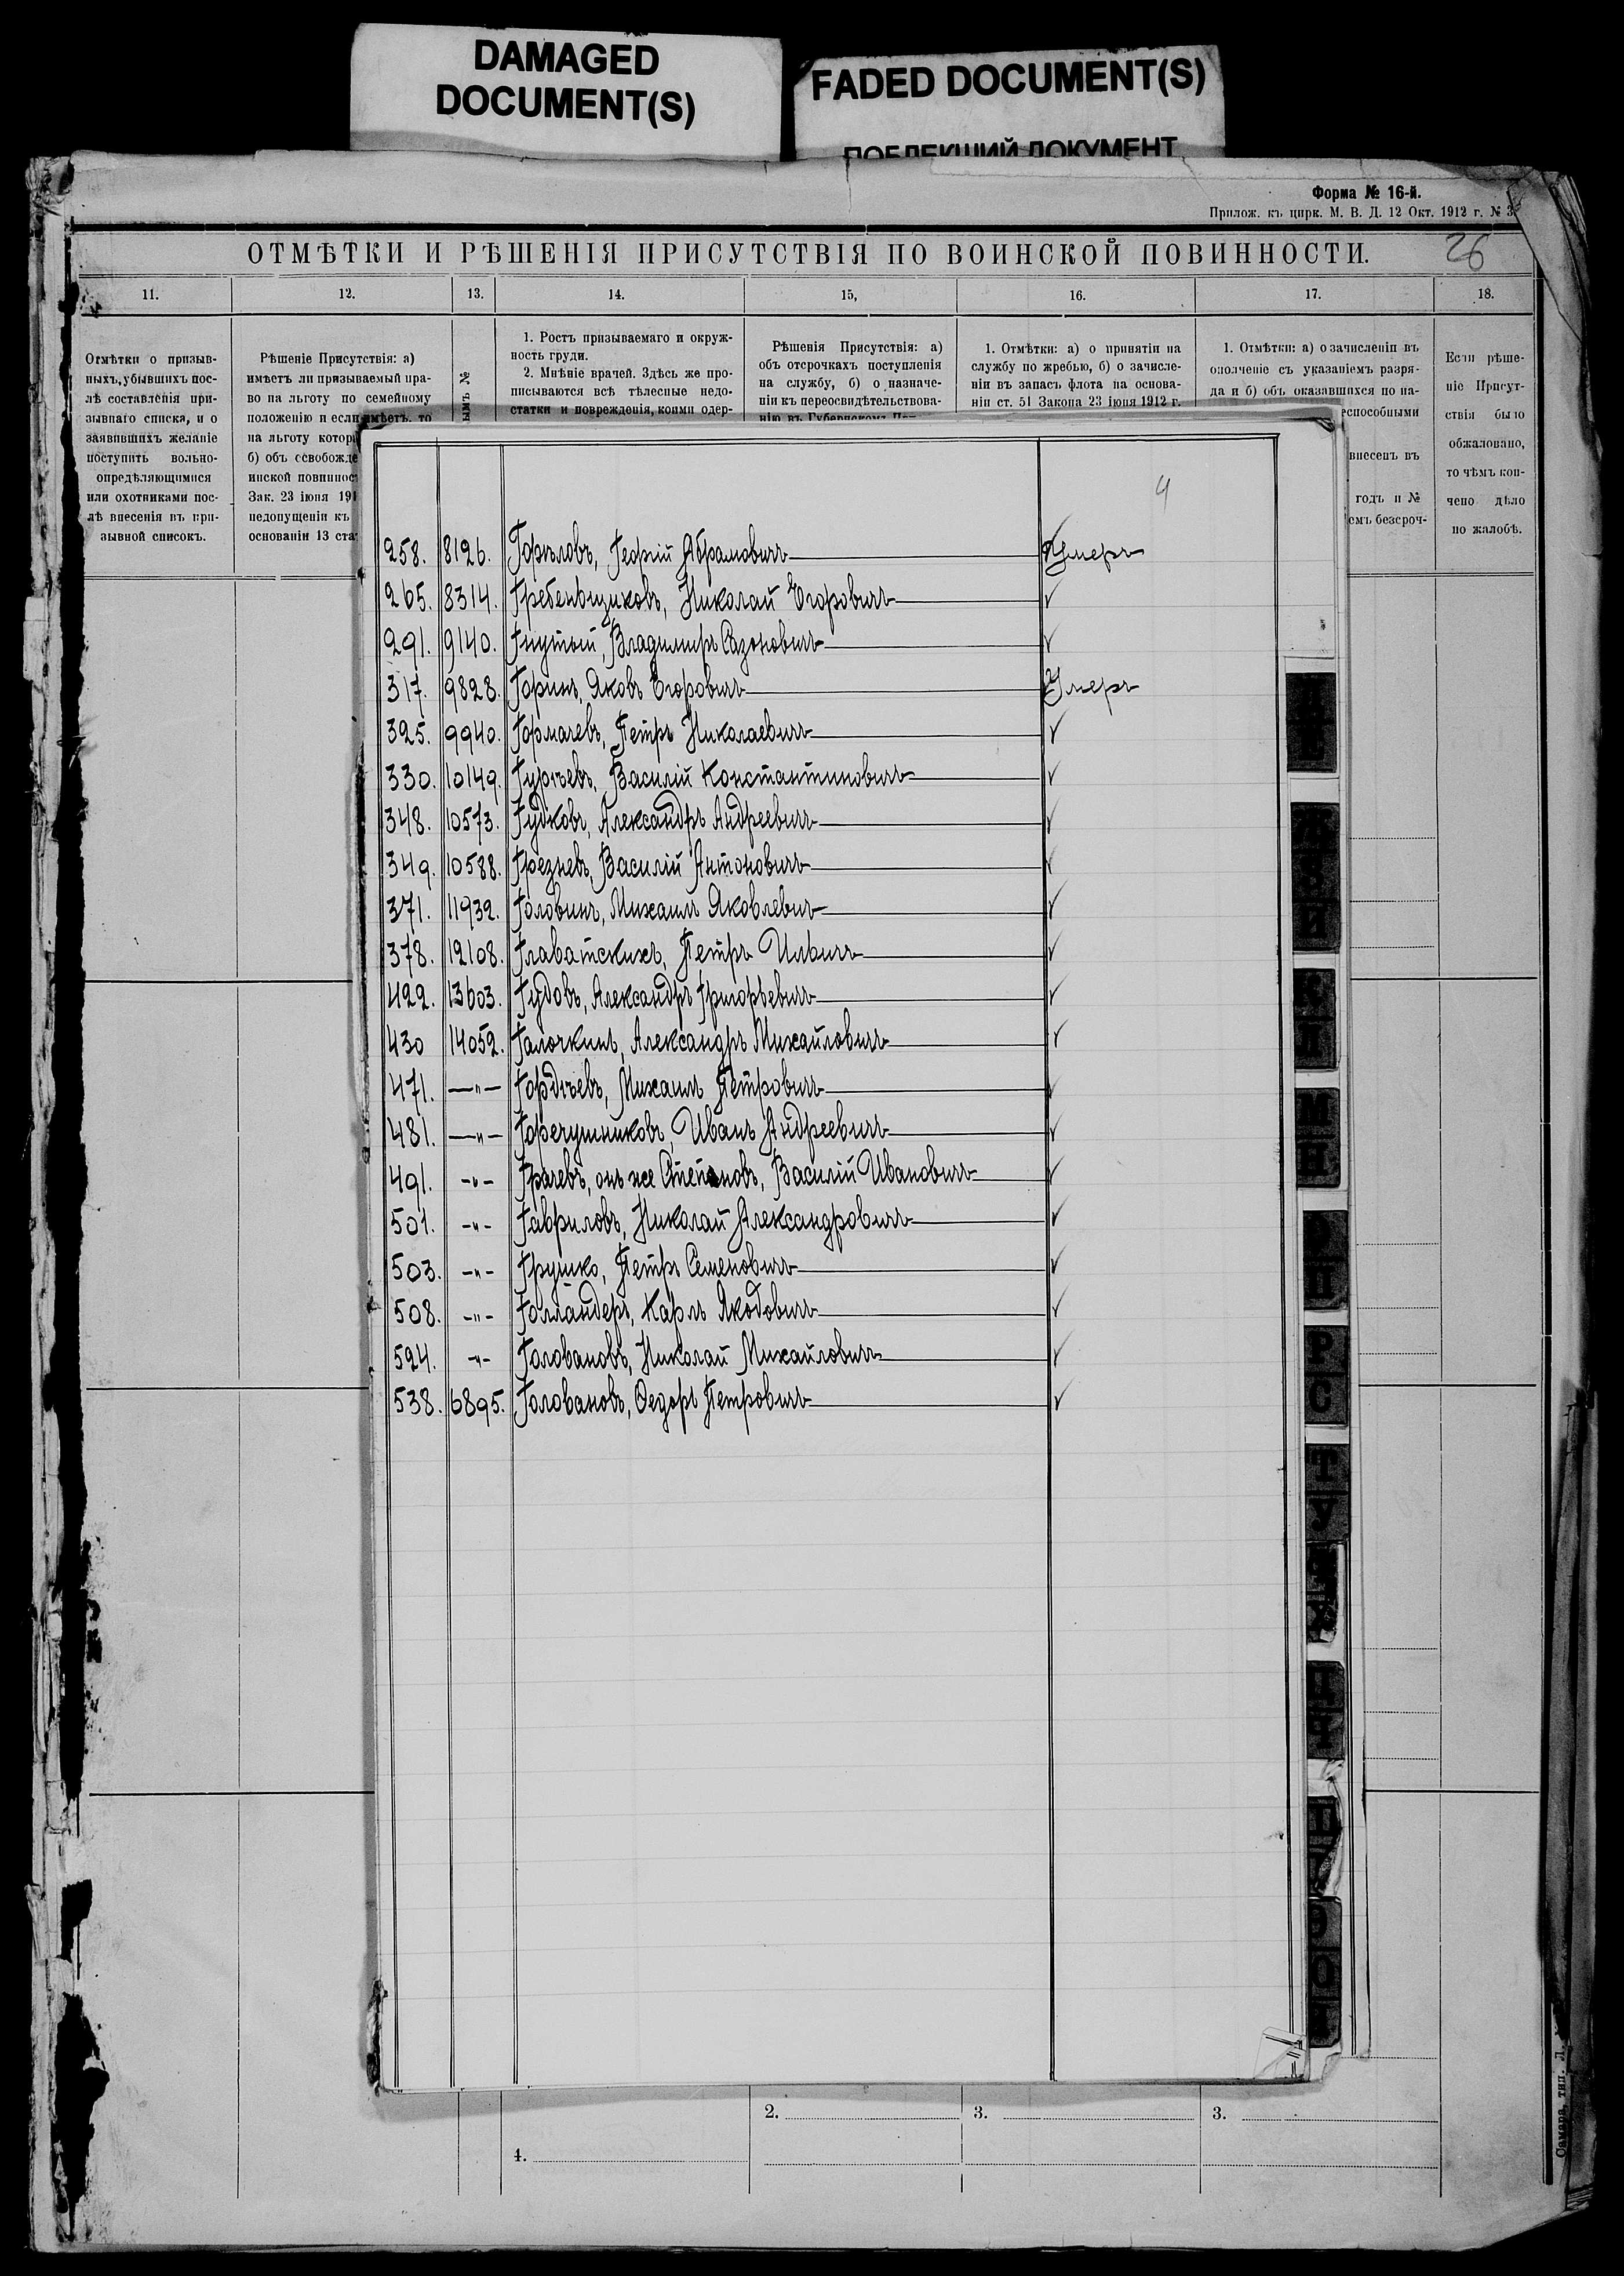 DAMAGED
DOCUMENT(S)
FADED DOCUMENT(S)
ПОБЛЕКШИЙ ДОКУМЕНТ
Форма № 16-й.
Прилож. къ цирк. М. В. Д. 12 Окт. 1912 г. № 3
ОТМѢТКИ И РѢШЕНІЯ ПРИСУТСТВІЯ ПО ВОИНСКОЙ ПОВИННОСТИ.
26
11. 12. 13. 14. 15, 16. 17. 18.
Отмѣтки о призыв-
ныхъ, убывшихъ пос-
лѣ составленія при-
зывнаго списка, и о
заявившихъ желаніе
поступить вольно-
опредѣляющимися
или охотниками пос-
лѣ внесенія въ при-
зывной списокъ.
Рѣшеніе Присутствія: а)
имѣетъ ли призываемый пра-
во на льготу по семейному
положенію и если имѣетъ, то
на льготу котор
б) объ освобожде
инской повиннос
Зак. 23 іюня 191
недопущеніи къ
основаніи 13 ста
ымъ №
1. Ростъ призываемаго и окруж-
ность груди.
2. Мнѣніе врачей. Здѣсь же про-
писываются всѣ тѣлесные недо-
статки и поврежденія, коими одер-
Рѣшенія Присутствія: а)
объ отсрочкахъ поступленія
на службу, б) о назначе-
ніи къ переосвидѣтельствова-
нію въ Губернскомъ
1. Отмѣтки: а) о принятіи на
службу по жребью, б) о зачисле-
ніи въ запасъ флота на основа-
ніи ст. 51 Закона 23 іюня 1912 г.
1. Отмѣтки: а) о зачисленіи въ
ополченіе съ указаніемъ разря-
да и б) объ оказавшихся по на-
еспособными
внесенъ въ
годъ и №
емъ безсроч-
Если рѣше-
ніе Присут-
ствія было
обжаловано,
то чѣмъ кон-
чено дѣло
по жалобѣ.
4
258. 8126. Горѣловъ, Георгій Абрамовичъ Умеръ
265. 8314. Гребеньщиковъ, Николай Егоровичъ ✓
291. 9140. Гнутой, Владимиръ Сазоновичъ ✓
317. 9828. Горинъ, Яковъ Егоровичъ Умеръ
325. 9940. Гормалевъ, Петръ Николаевичъ ✓
330. 10149. Гурѣевъ, Василій Константиновичъ ✓
348. 10573. Гудковъ, Александръ Андреевичъ ✓
349. 10588. Грезневъ, Василій Антоновичъ ✓
371. 11932. Головинъ, Михаилъ Яковлевичъ ✓
378. 12108. Главатскихъ, Петръ Ильичъ ✓
422. 13603. Гудовъ, Александръ Григорьевичъ ✓
430 14052. Галочкинъ, Александръ Михайловичъ ✓
471. —"— Гордѣевъ, Михаилъ Петровичъ ✓
481. —"— Горчушниковъ, Иванъ Андреевичъ ✓
491. -"- Грачевъ, онъ же Степановъ, Василій Ивановичъ ✓
501. -"- Гавриловъ, Николай Александровичъ ✓
503. -"- Грушко, Петръ Семеновичъ ✓
508. -"- Голландеръ, Карлъ Якобовичъ ✓
524. -"- Головановъ, Николай Михайловичъ ✓
538. 6895. Головановъ, Федоръ Петровичъ ✓
2. 3. 3.
4.
Самара, тип. Л.